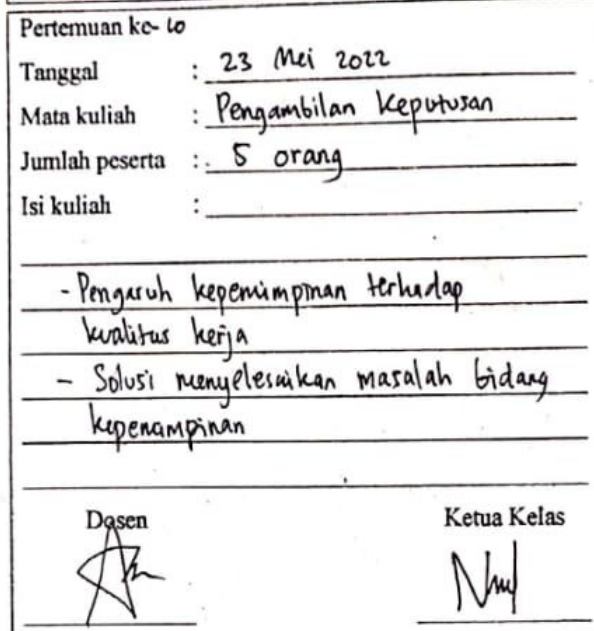 Pertemuan ke- 10
Tanggal : 23 Mei 2022
Mata kuliah : Pengambilan Keputusan
Jumlah peserta : 5 orang
Isi kuliah :
- Pengaruh kepemimpinan terhadap
kualitas kerja
- Solusi menyelesaikan masalah bidang
kepemimpinan
Dosen Ketua Kelas